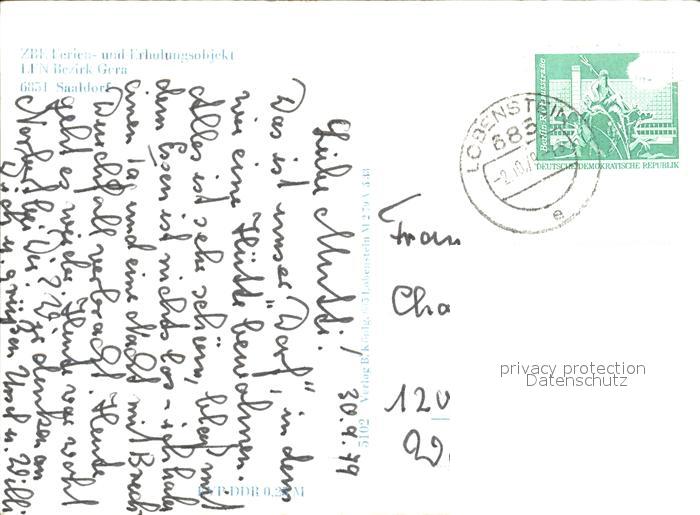 ZBE Ferien- und Erholungsobjekt
LPN Bezirk Gera
6851 Saaldorf
30.9.79
Liebe Mutti!
Das ist unser "Dorf", in dem
wir eine Hütte bewohnen.
Alles ist sehr schön, bloß mit
dem Essen ist nichts los – ich habe
einen Tag und eine Nacht mit Brech
Durchfall verbracht. Heute
geht es wieder. Heute war wohl
Norbert bei Dir? Wir denken an
Dich u. grüßen u. Willi
5102 Verlag B. König, 685 Lobenstein M 2 79A 533
EVP DDR 0,20 M
Berlin Rathausstraße
DEUTSCHE DEMOKRATISCHE REPUBLIK
LOBENSTEIN
685
-2.10.79
e
Frau
Cha
120
privacy protection
Datenschutz